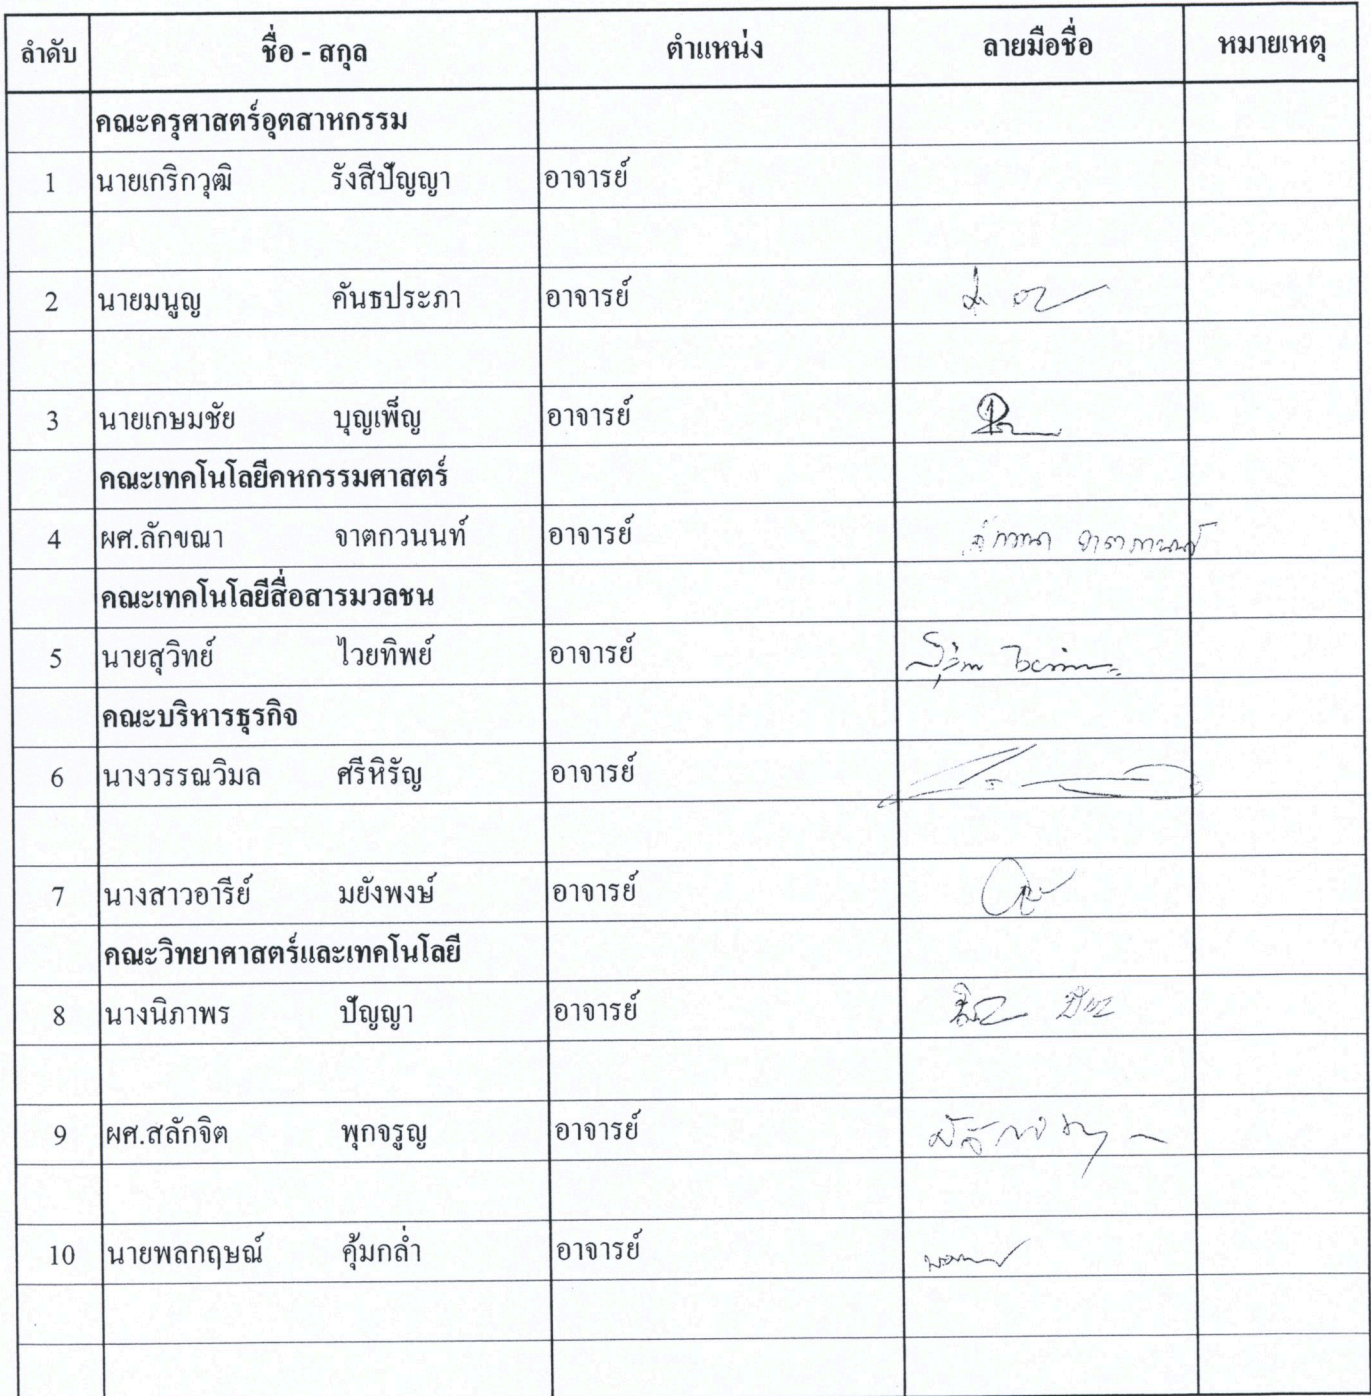 ลำดับ ชื่อ - สกุล ตำแหน่ง ลายมือชื่อ หมายเหตุ
คณะครุศาสตร์อุตสาหกรรม
1 นายเกริกวุฒิ รังสีปัญญา อาจารย์
2 นายมนูญ คันธประภา อาจารย์
3 นายเกษมชัย บุญเพ็ญ อาจารย์
คณะเทคโนโลยีคหกรรมศาสตร์
4 ผศ.ลักขณา จาตกวนนท์ อาจารย์
คณะเทคโนโลยีสื่อสารมวลชน
5 นายสุวิทย์ ไวยทิพย์ อาจารย์
คณะบริหารธุรกิจ
6 นางวรรณวิมล ศรีหิรัญ อาจารย์
7 นางสาวอารีย์ มยังพงษ์ อาจารย์
คณะวิทยาศาสตร์และเทคโนโลยี
8 นางนิภาพร ปัญญา อาจารย์
9 ผศ.สลักจิต พุกจรูญ อาจารย์
10 นายพลกฤษณ์ คุ้มกล่ำ อาจารย์